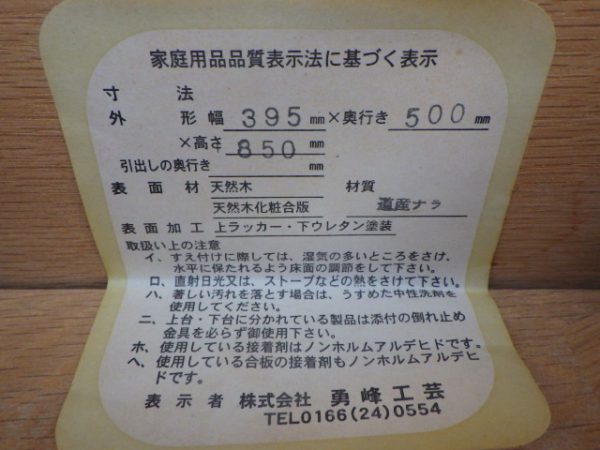 家庭用品品質表示法に基づく表示
寸法
外形 幅 395 mm ×奥行き 500 mm
×高さ 850 mm
引出しの奥行き mm
表面材 天然木 材質
天然木化粧合版 道産ナラ
表面加工 上ラッカー・下ウレタン塗装
取扱い上の注意
イ、すえ付けに際しては、湿気の多いところをさけ、
水平に保たれるよう床面の調節をして下さい。
ロ、直射日光又は、ストーブなどの熱をさけて下さい。
ハ、著しい汚れを落とす場合は、うすめた中性洗剤を
使用してください。
ニ、上台・下台に分かれている製品は添付の倒れ止め
金具を必らず御使用下さい。
ホ、使用している接着剤はノンホルムアルデヒドです。
ヘ、使用している合板の接着剤もノンホルムアルデヒ
ドです。
表示者 株式会社 勇峰工芸
TEL0166(24)0554